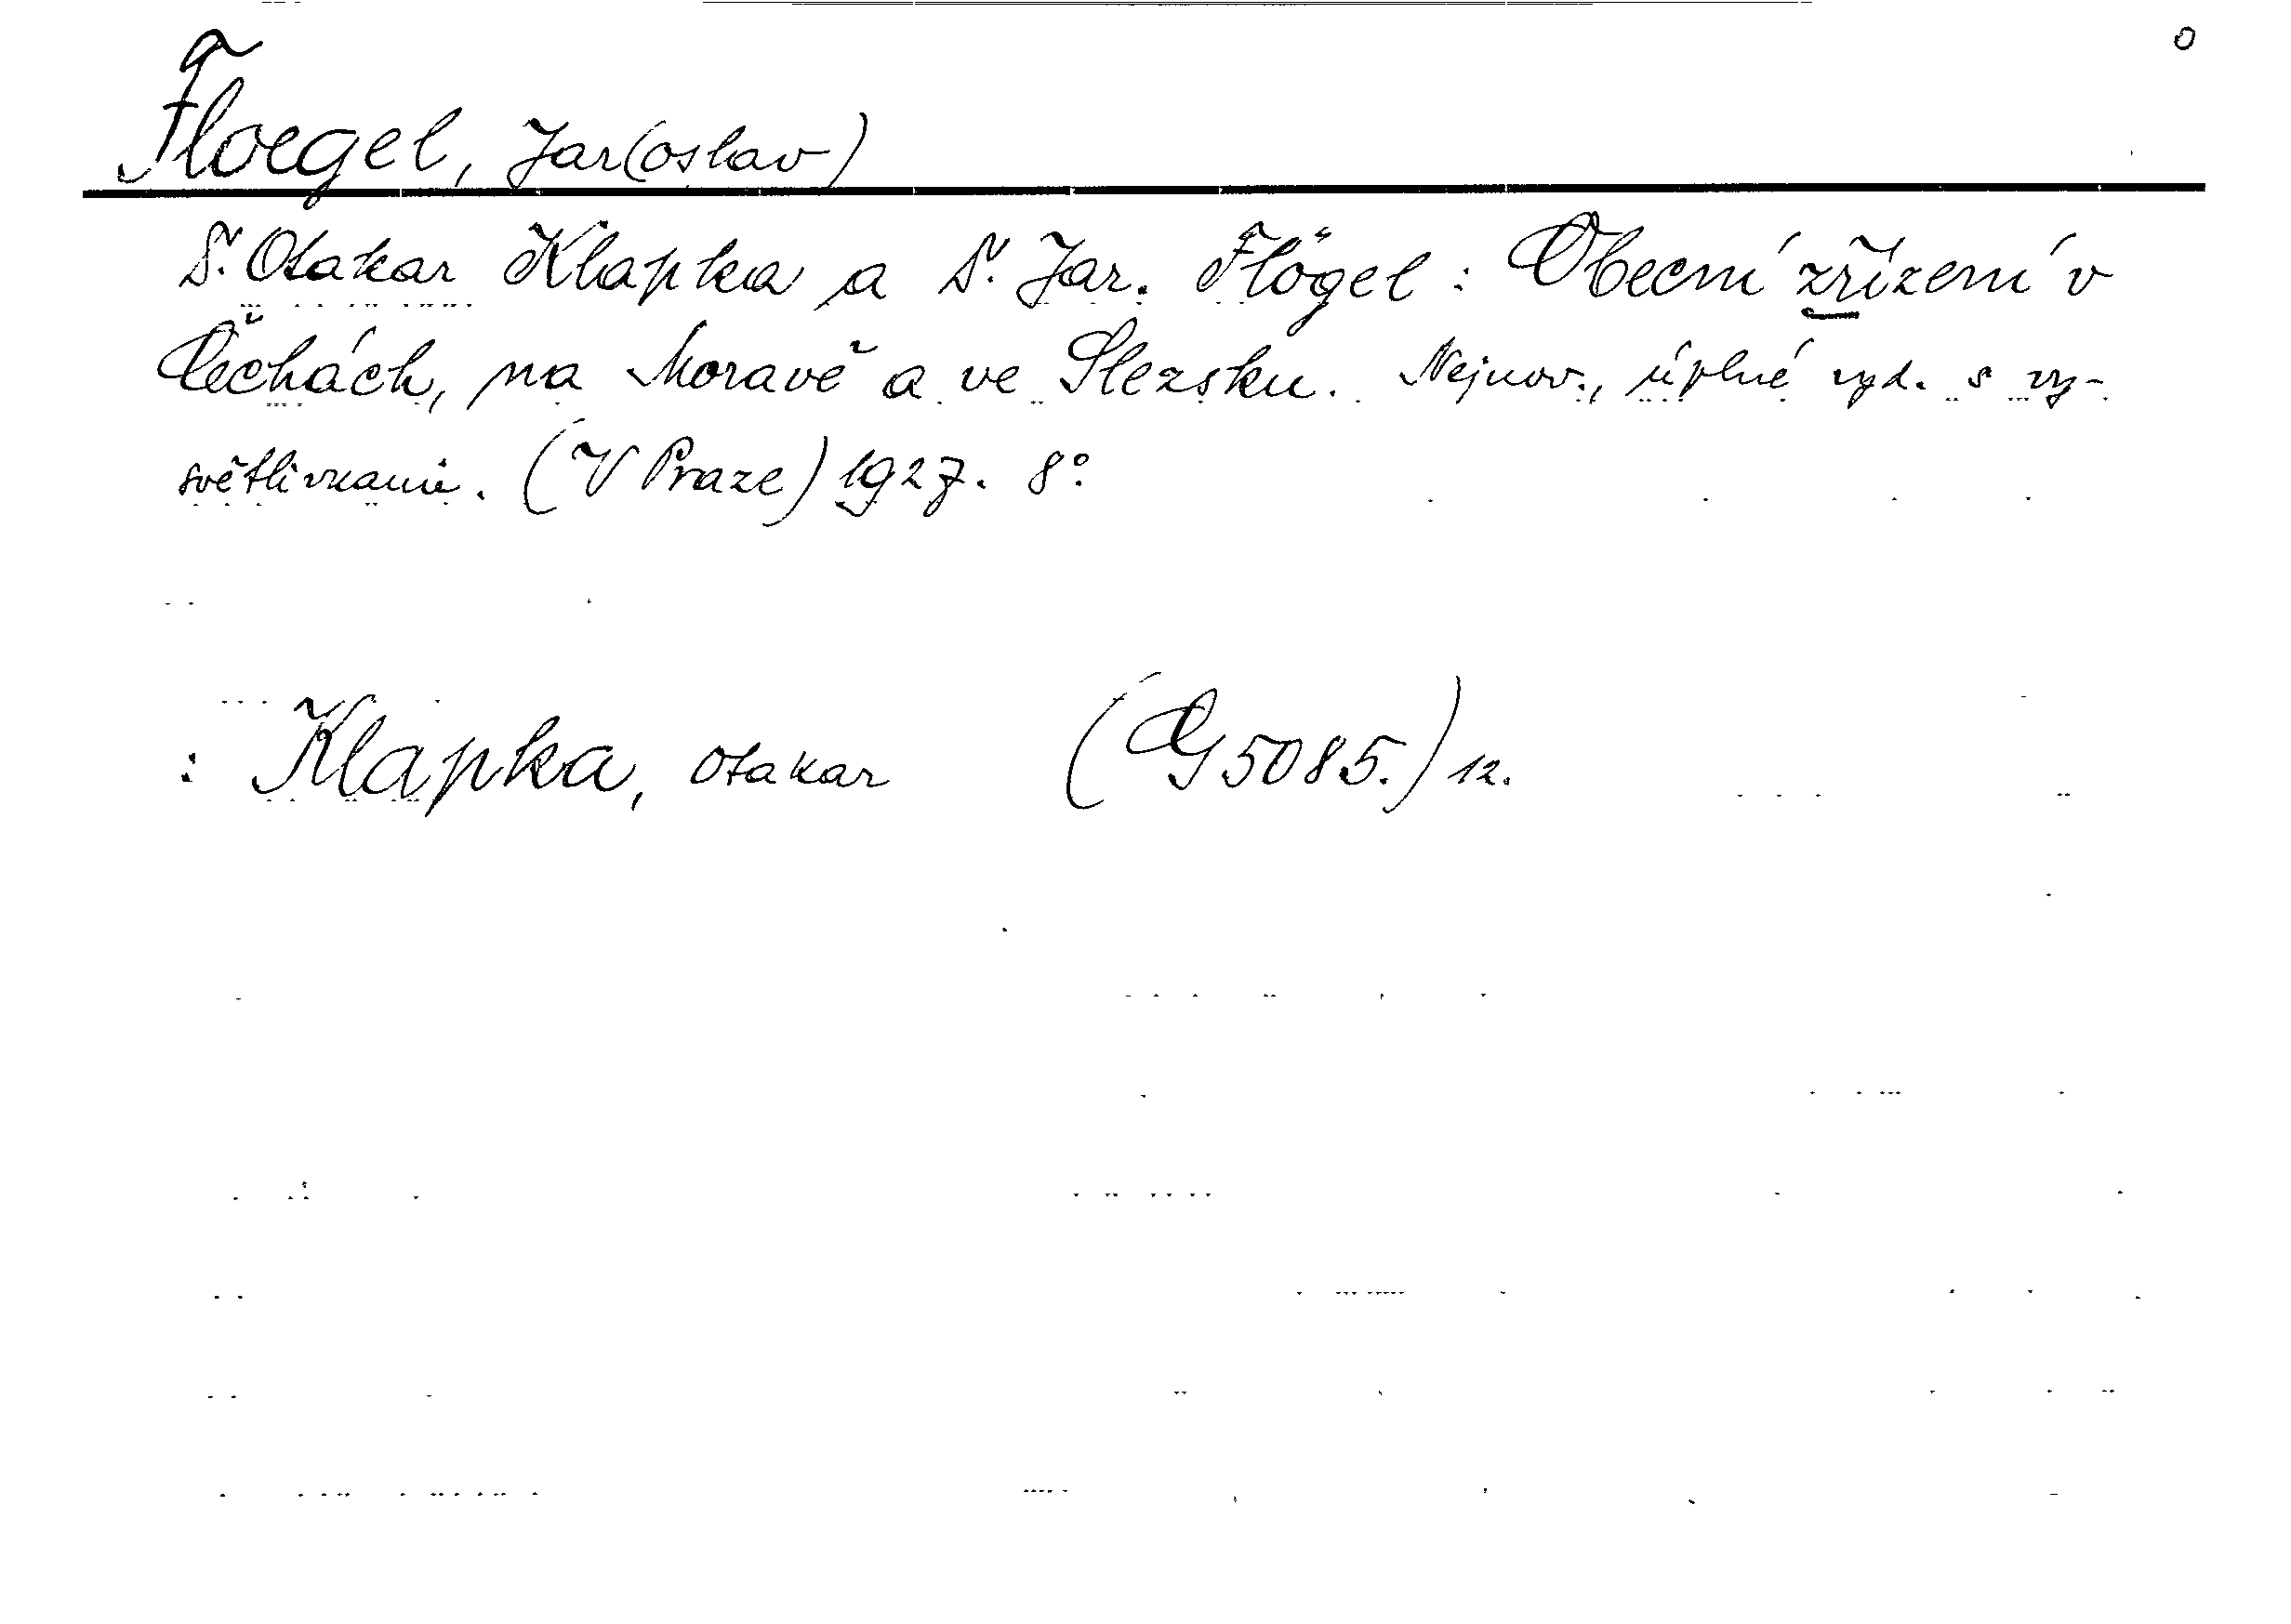 0
Floegel, Jar(oslav)
D. Otakar Klapka a D. Jar. Flögel: Obecní zřízení v
Čechách, na Moravě a ve Slezsku. Nejnov., úplné vyd. s vy-
světlivkami. (V Praze) 1927. 8°.
: Klapka, Otakar (G 5085.) 12.